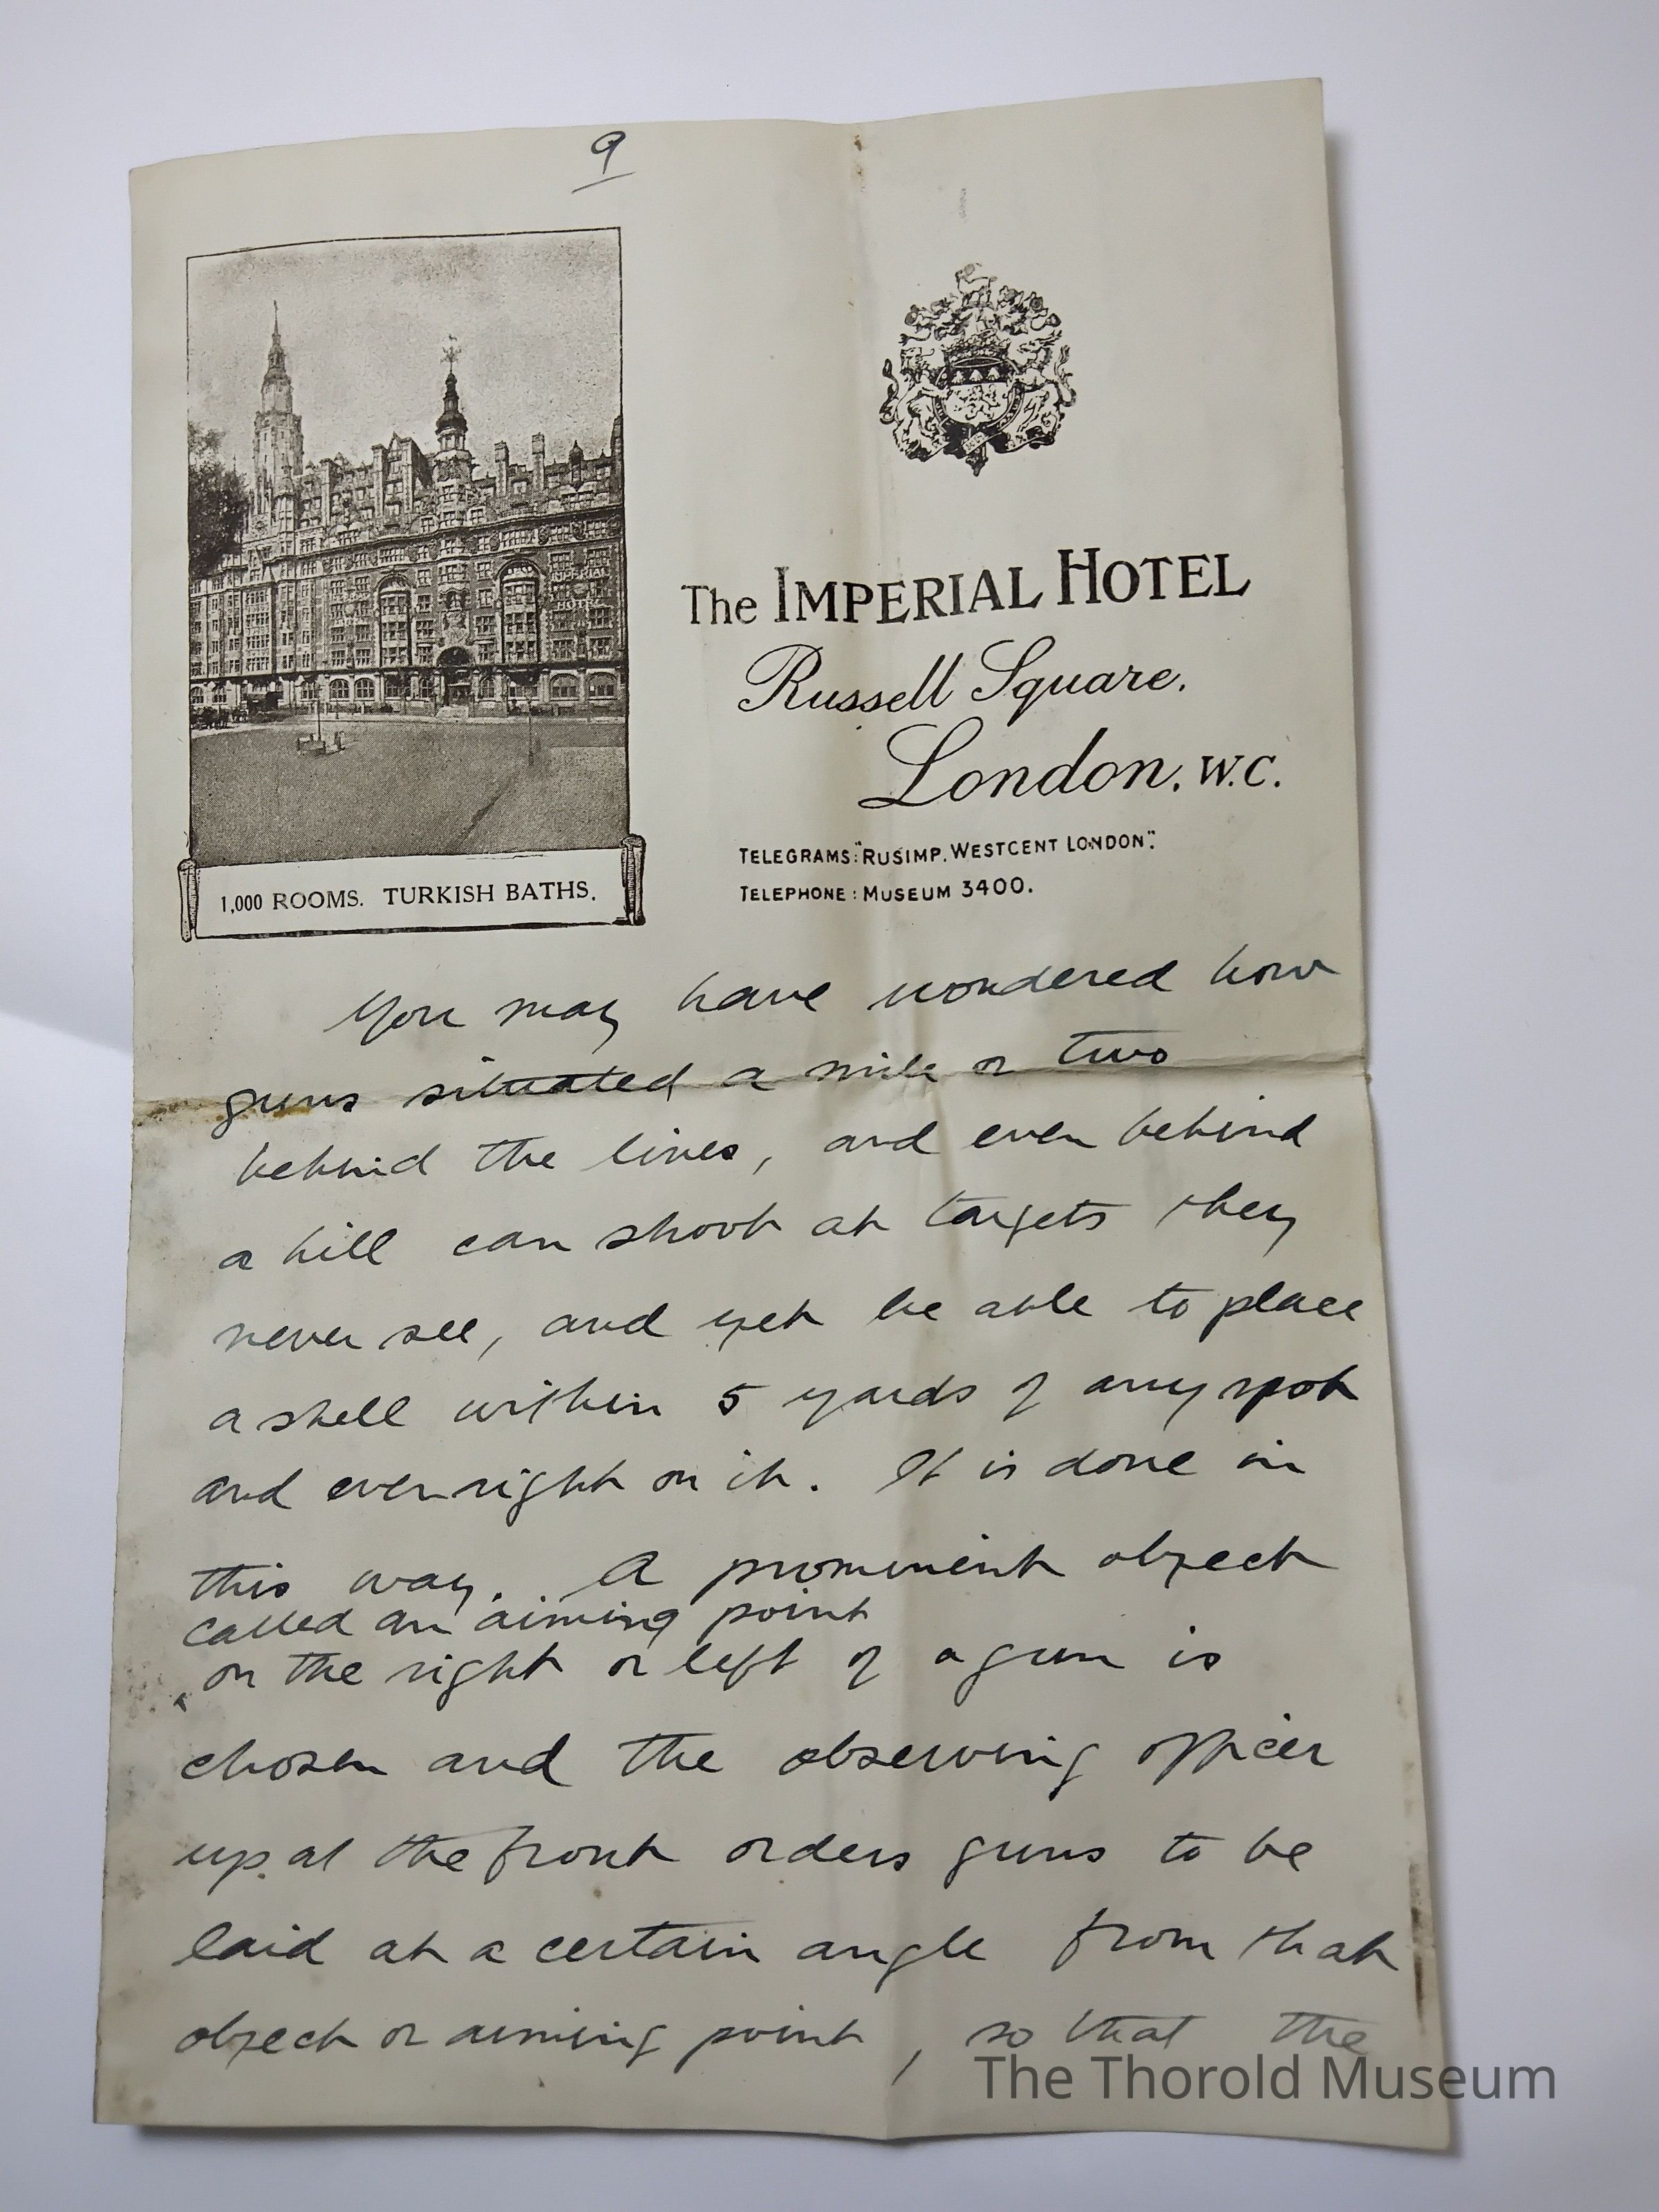 9
The IMPERIAL HOTEL
Russell Square,
London. W.C.
TELEGRAMS: "RUSIMP. WESTCENT LONDON".
TELEPHONE: MUSEUM 3400.
1,000 ROOMS. TURKISH BATHS.
You may have wondered how
guns situated a mile or two
behind the lines, and even behind
a hill can shoot at targets they
never see, and yet be able to place
a shell within 5 yards of any spot
and even right on it. It is done in
this way. A prominent object
called an aiming point
on the right or left of a gun is
chosen and the observing officer
up at the front orders guns to be
laid at a certain angle from that
object or aiming point, so that the
The Thorold Museum